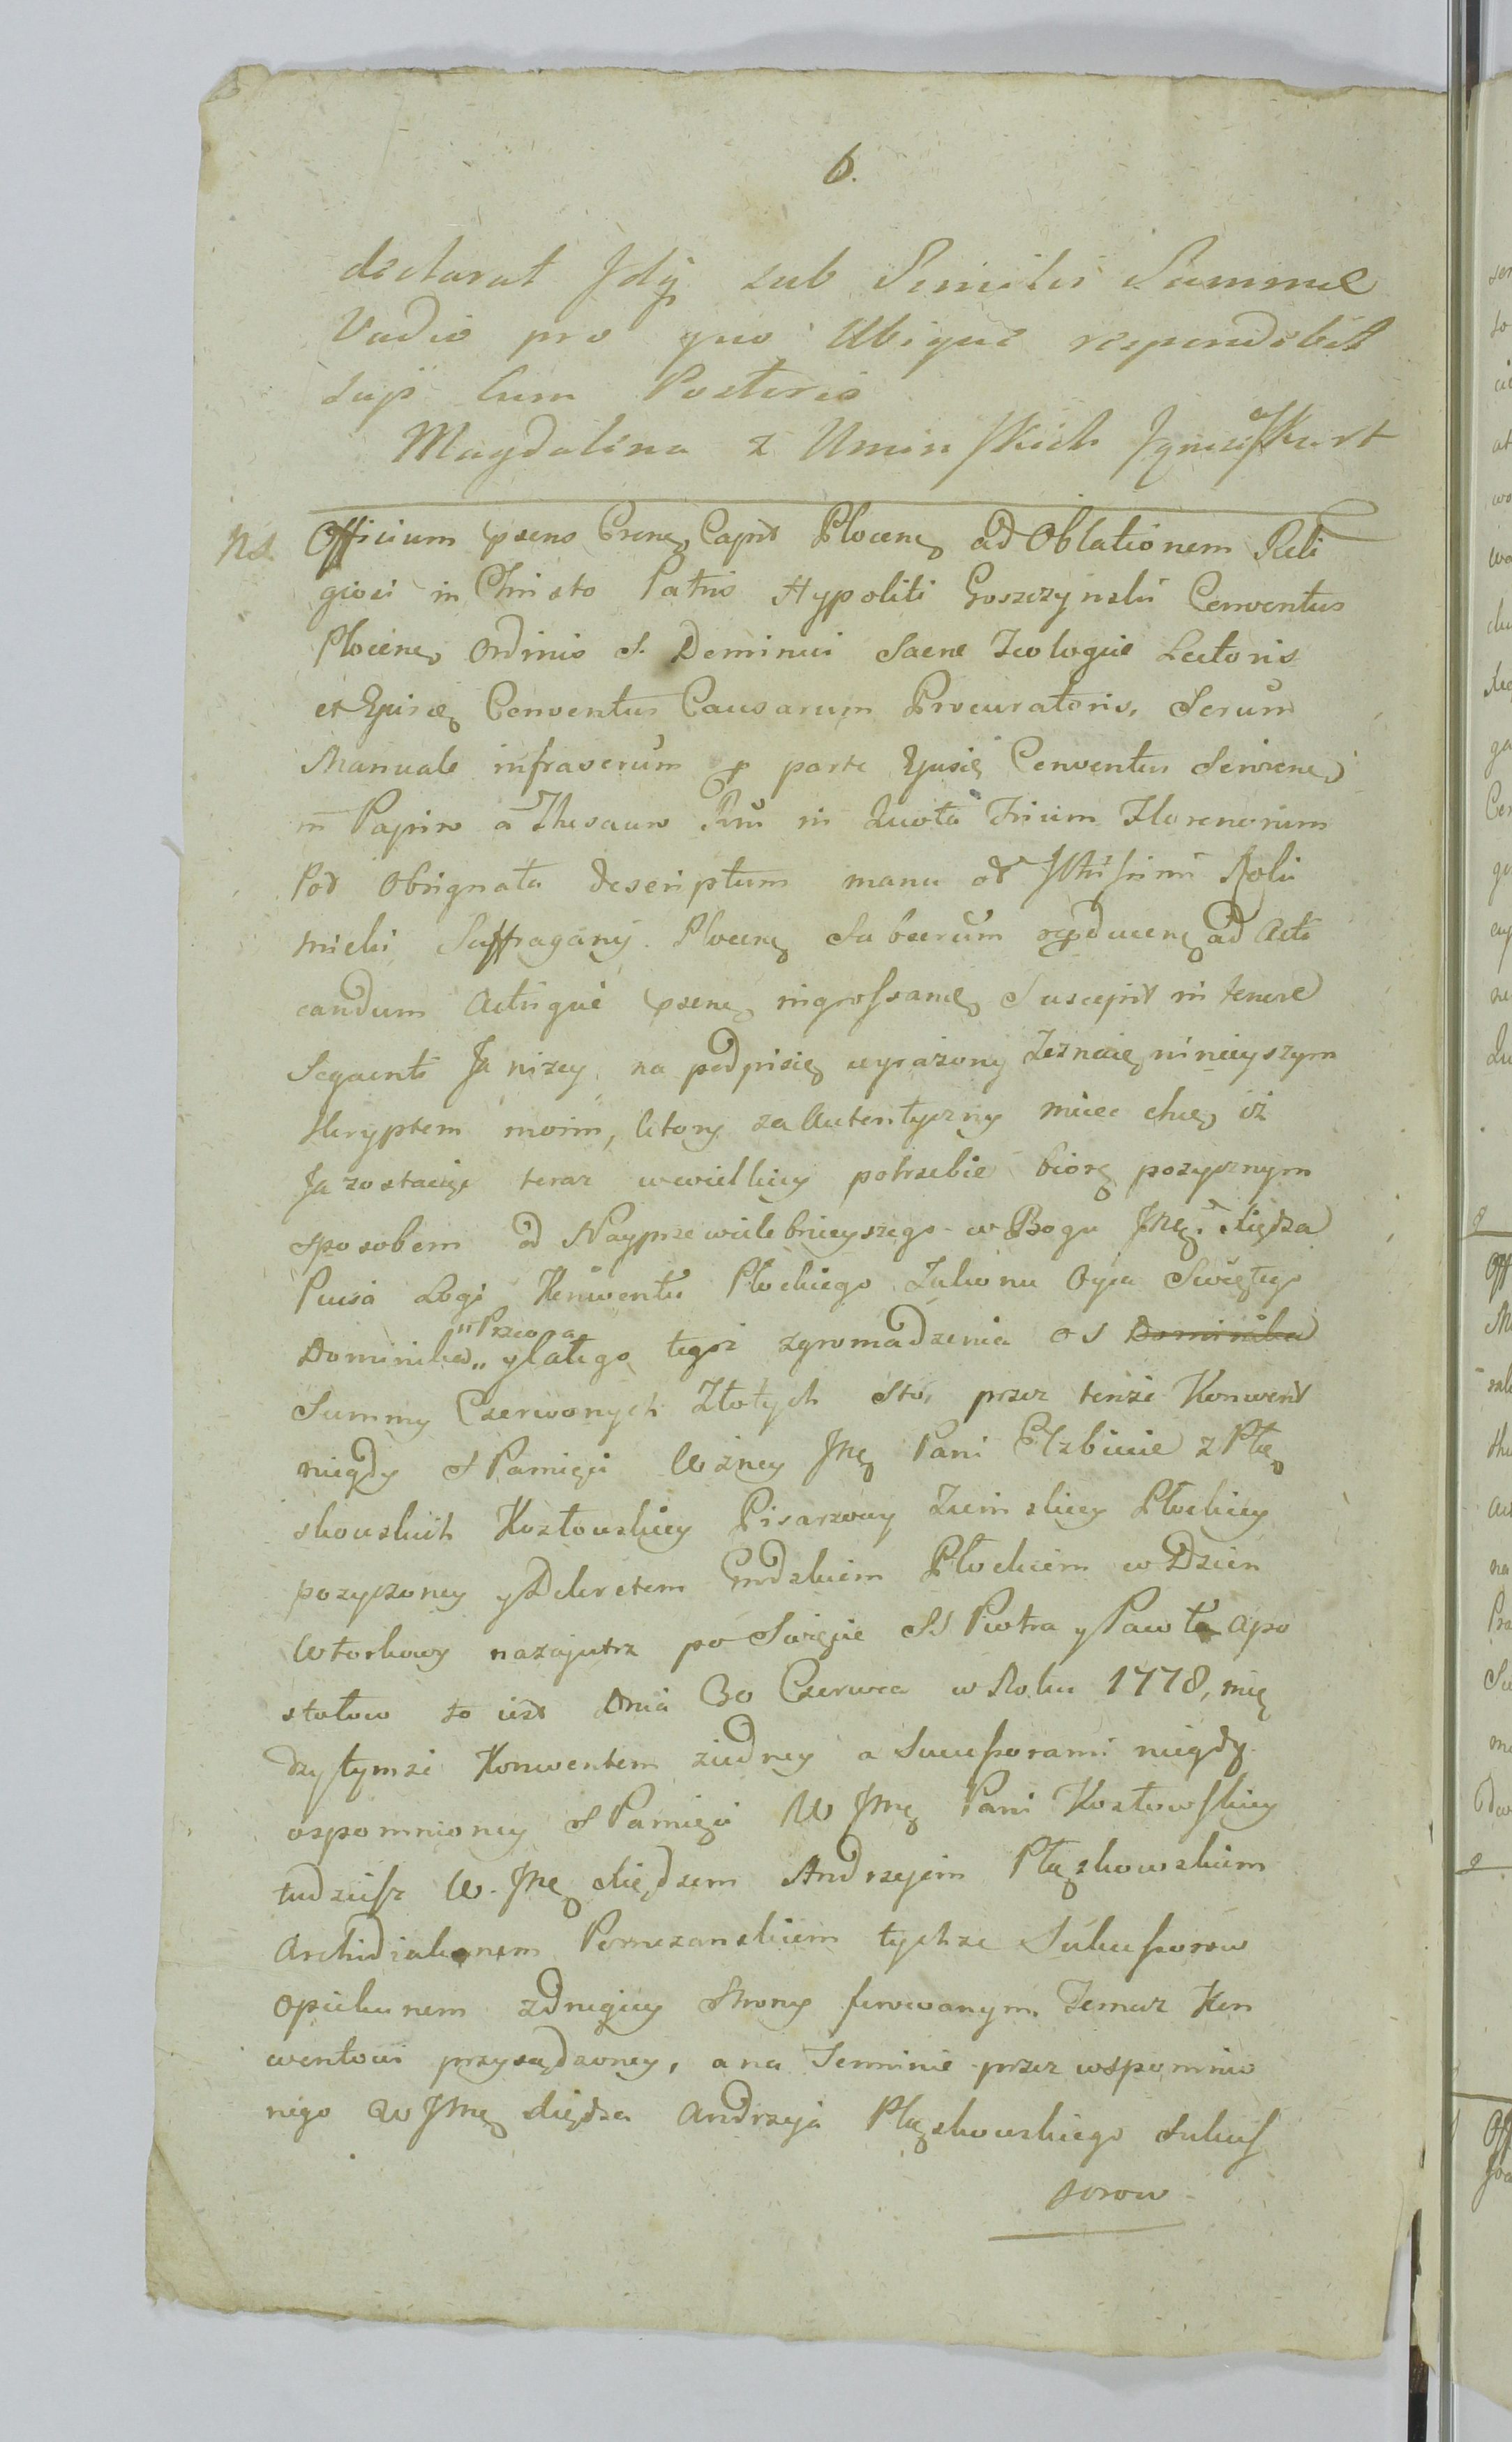 6.
declarat Idq sub Simili Summae
Vadio pro quo Ubique respondebit
seqs Cum Posteris
Magdalena z Uminskich
Ns. Officium psens Crense Capit Plocens ad Oblationem Reli
giosi in Christo Patris Hypoliti Goszczynski Conventus
Plocens Ordinis S. Dominici Sacre Teologie Lectoris
et Conventus Causarum Procuratoris, Scrum
Manuale infraserum p parte Conventus Serviens
in Papiro a Thesauro Rni in Quota Trium Florenorum
Pol Obsignata descriptum manu
mieki Suffragany Plocens Subscrum ad Acti
candum Actisque psens ingrossand Suscepit in tenore
Sequenti Ja nizey na podpisie wyrazony Zeznaię ninieyszym
Skryptem moim, ktory za Autentyczny miec chcę iż
Ja zostaiąc teraz w wielkiey potrzebie biorę pozycznym
sposobem od Nayprzewielebnieyszego w Bogu Jmę. Xiędza
Piusa Konwentu Płockiego Zakonu Oyca Swiętego
Dominika „Przeora
„ y całego tegoż zgromadzenia OS Dominika
Summy Czerwonych Złotych Sto, przez tenże Konwent
niegdy S Pamięci W żney Jmę Pani Elzbiecie z Plą
skowskich Kozłowskiey Pisarzowy Ziemskiey Płockiey
pozyczoney y Dekretem Grodzkiem Płockiem w Dzien
Wtorkowy nazajutrz po Swięcie SS Piotra y Pawła Apo
stołow to iest Dnia 30 Czerwca w Roku 1778, mię
dzy tymże Konwentem ziedney a Sucessorami niegdy
wspomnioney S Pamięci W Jmę Pani Kozłowskiey
tudziesz W. Jmę Xiędzem Andrzejem Pląskowskiem
Archidiakonem Pomezanskiem tychże Sukcessorow
Opiekunem zdrugiey Strony ferowanym Temuż Kon
wentowi przysądzoney, a na Terminie przez wspomnio
nego W Jmę Xiędza Andrzeja Pląskowskiego Sukces
sorow